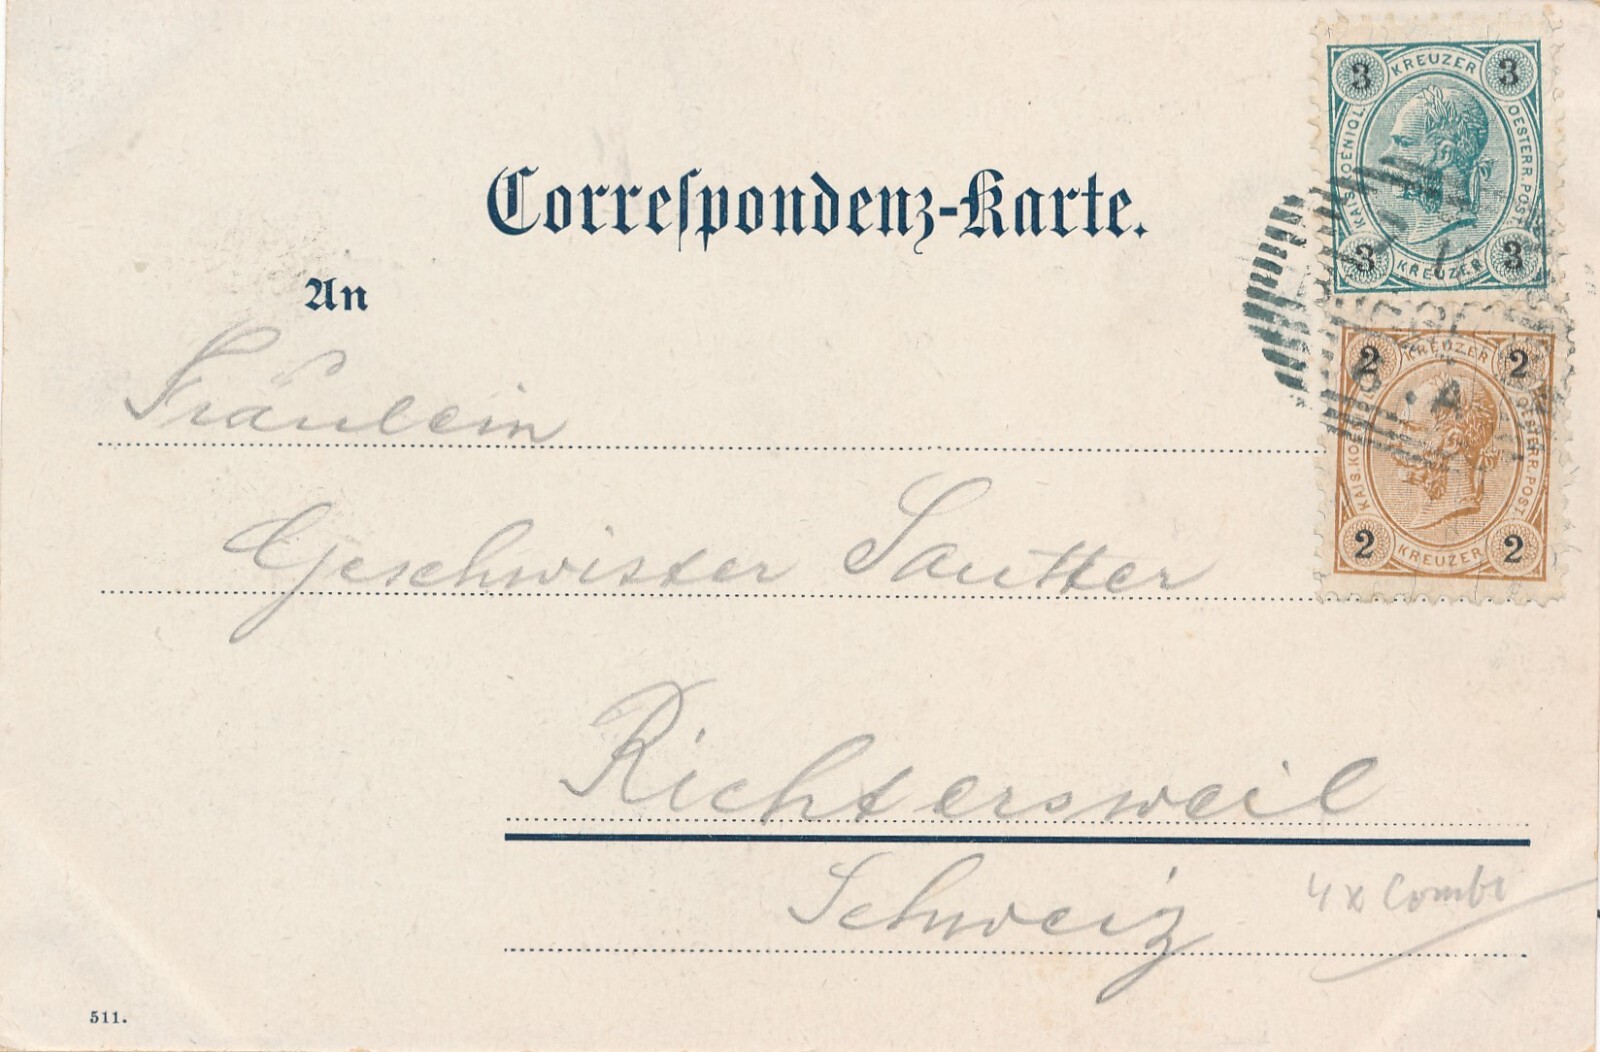 Correspondenz-Karte.
An
Fräulein
Geschwister Sautter
Richtersweil
Schweiz
4x Combi
511.
3 KREUZER 3
KAIS. KOENIGL. OESTERR. POST.
3 KREUZER 3
2 KREUZER 2
KAIS. KOENIGL. OESTERR. POST.
2 KREUZER 2